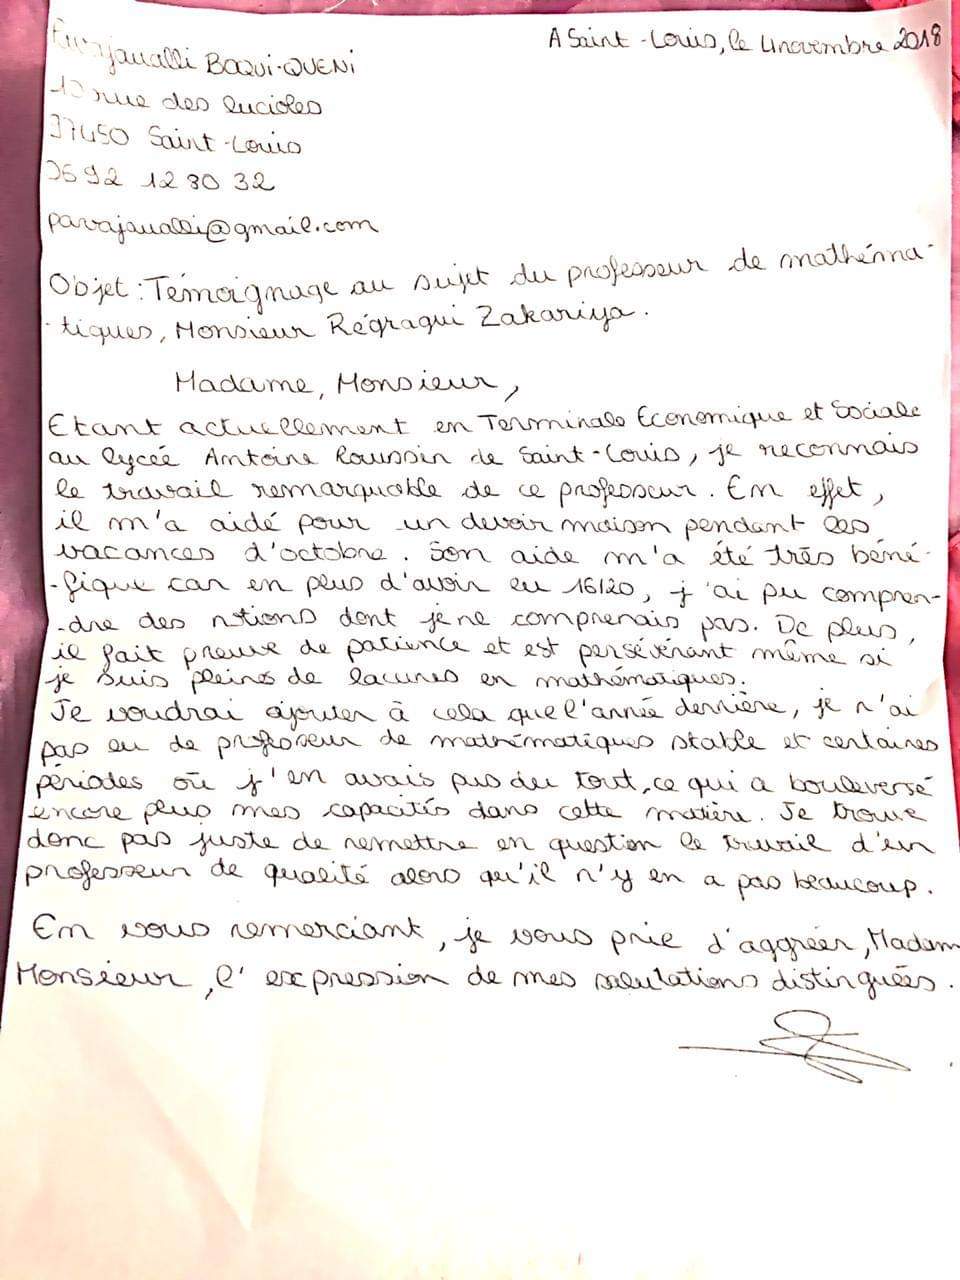 A Saint-Louis, le 4 novembre 2018
BOQUI-QUENI
rue des lucioles
97450 Saint-Louis
0692 12 30 32
pavajaualli@gmail.com
Objet : Témoignage au sujet du professeur de mathéma-
-tiques, Monsieur Régragui Zakariya.
Madame, Monsieur,
Etant actuellement en Terminale Economique et Sociale
au lycée Antoine Roussin de Saint-Louis, je reconnais
le travail remarquable de ce professeur. En effet,
il m'a aidé pour un devoir maison pendant les
vacances d'octobre. Son aide m'a été très béné-
-fique car en plus d'avoir eu 16/20, j'ai pu compren-
-dre des notions dont je ne comprenais pas. De plus,
il fait preuve de patience et est persévérant même si
je suis pleins de lacunes en mathématiques.
Je voudrai ajouter à cela que l'année dernière, je n'ai
pas eu de professeur de mathématiques stable et certaines
périodes où j'en avais pas du tout, ce qui a bouleversé
encore plus mes capacités dans cette matière. Je trouve
donc pas juste de remettre en question le travail d'un
professeur de qualité alors qu'il n'y en a pas beaucoup.
En vous remerciant, je vous prie d'aggréer, Madam
Monsieur, l'expression de mes salutations distinguées.